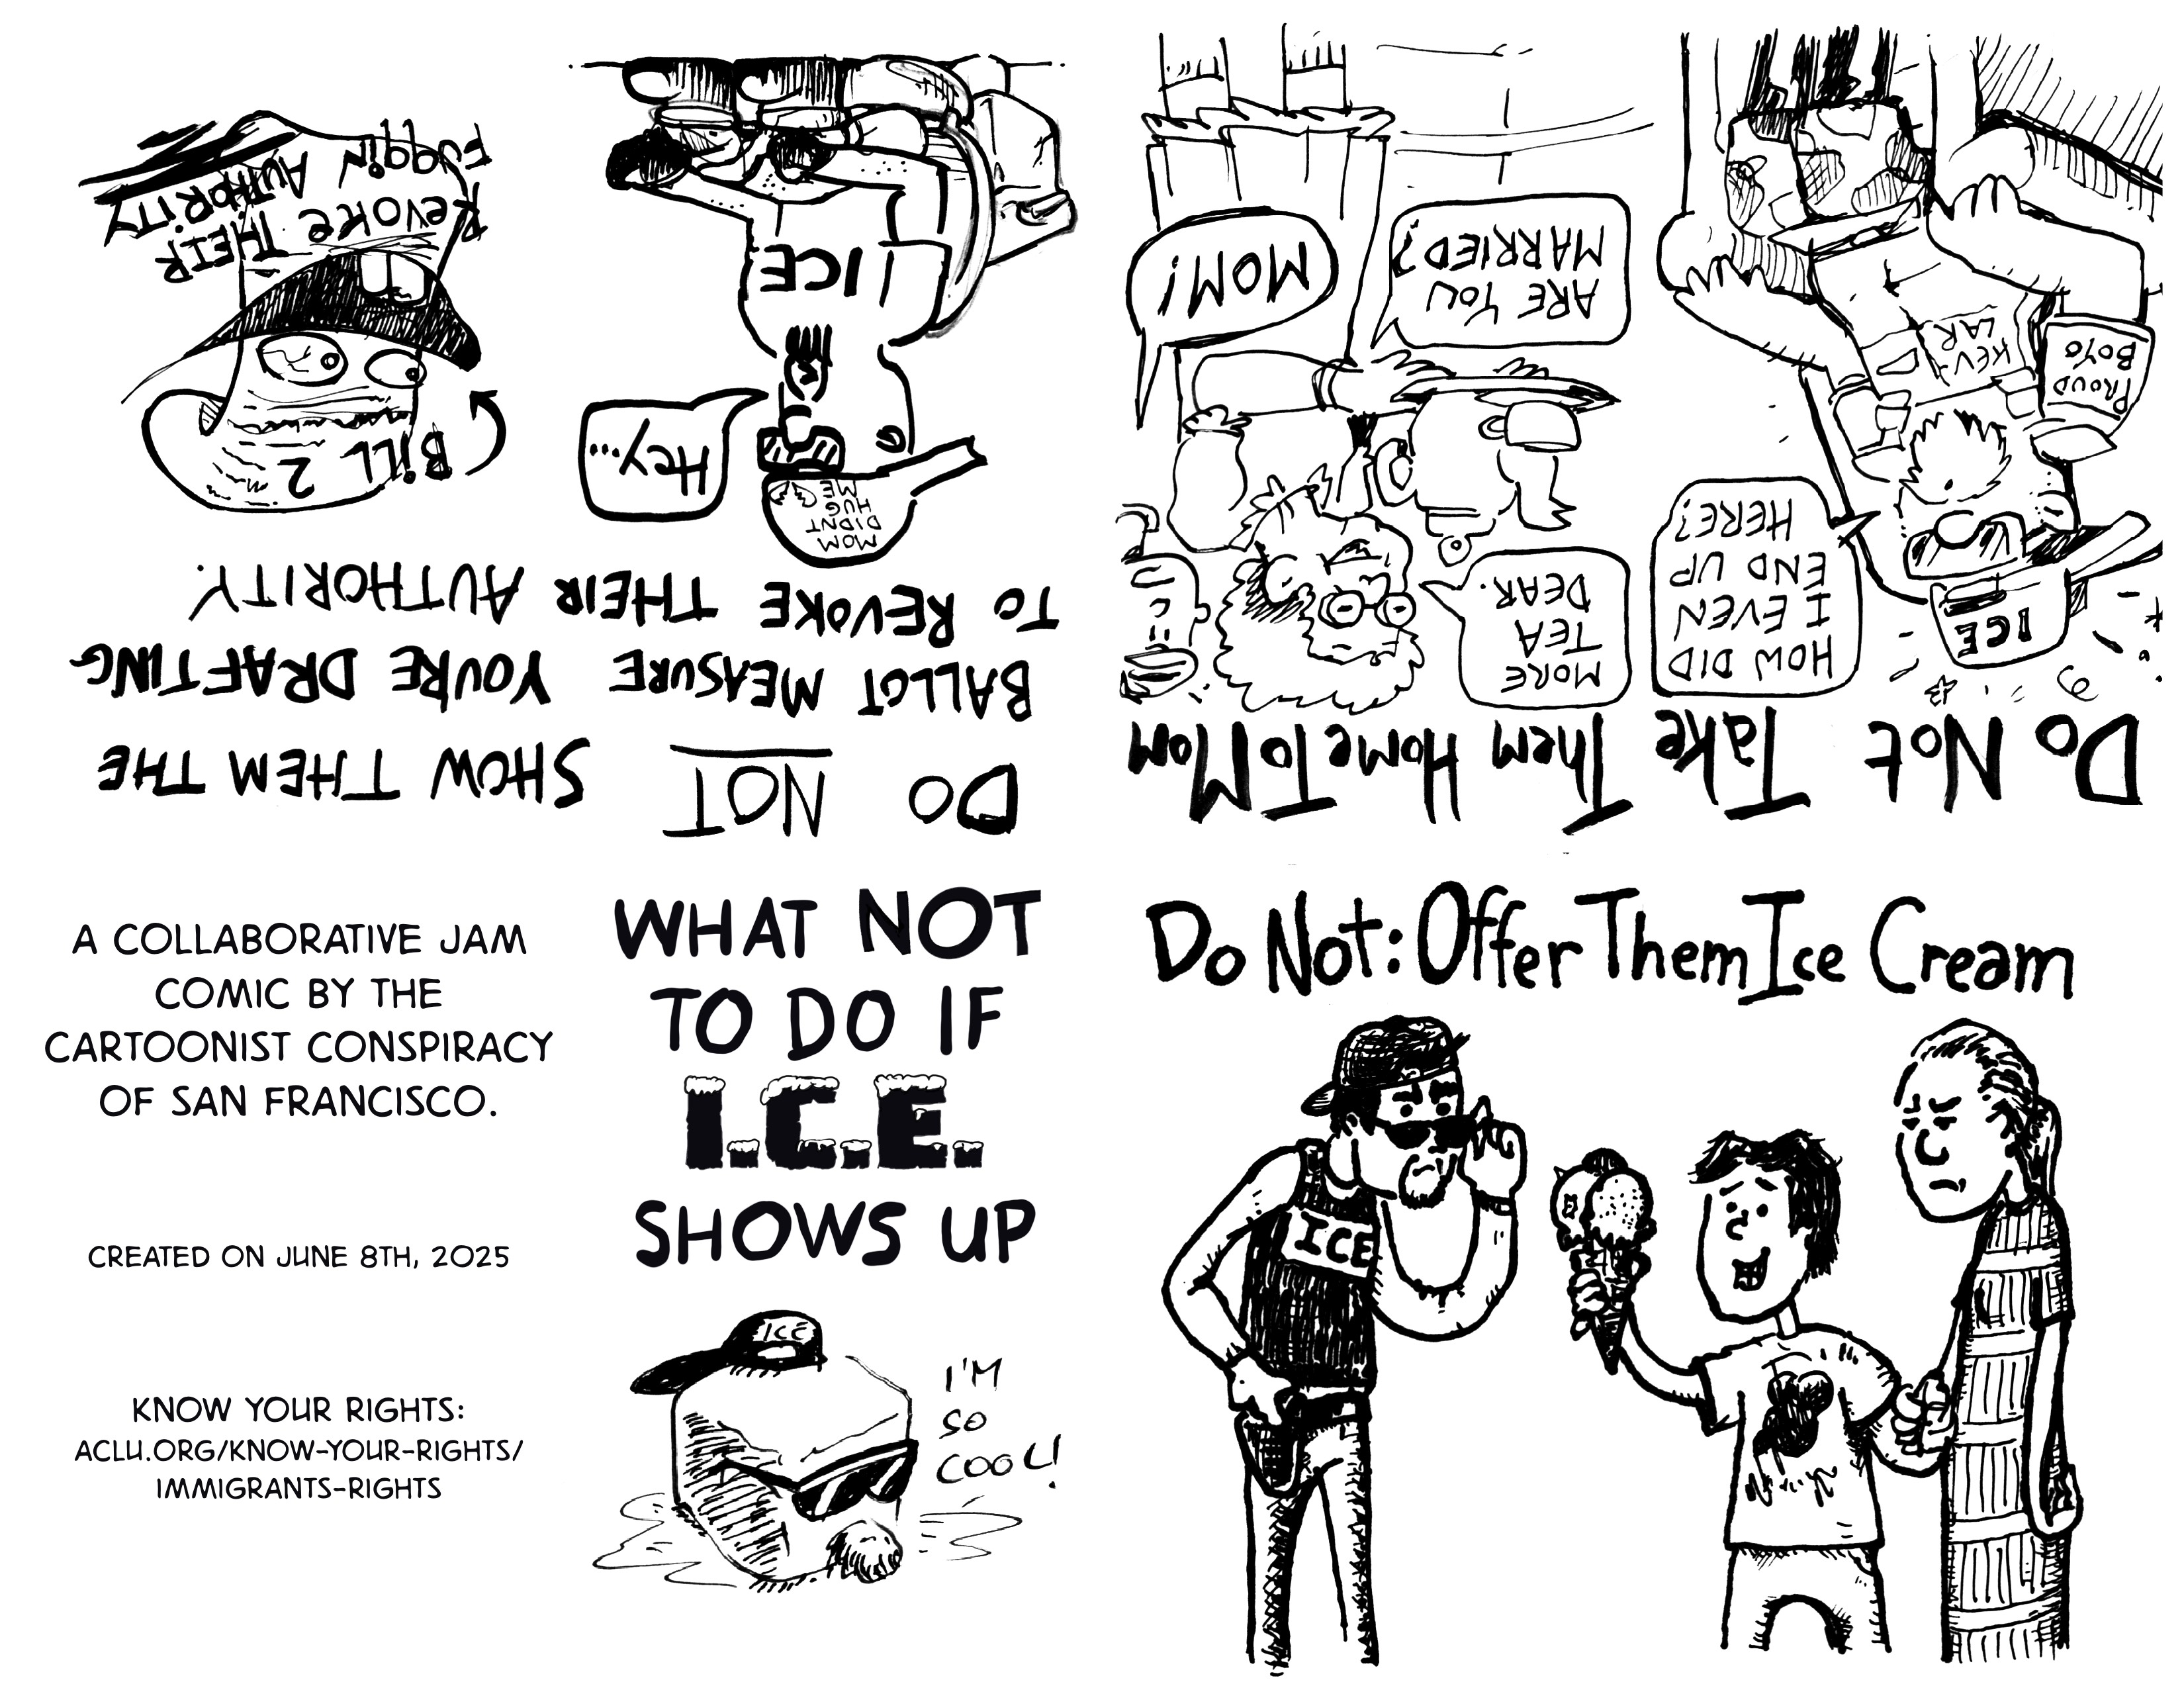 WHAT NOT
TO DO IF
I.C.E.
SHOWS UP
ICE
I'M
SO
COOL!
Do Not: Offer Them Ice Cream
ICE
Do Not Take Them Home To Mom
HOW DID
I EVEN
END UP
HERE?
ICE
PROUD
BOYO
KEV
LAR
MORE
TEA
DEAR.
ARE YOU
MARRIED?
MOM!
DO NOT SHOW THEM THE
BALLOT MEASURE YOU'RE DRAFTING
TO REVOKE THEIR AUTHORITY.
MOM
DIDNT
HUG
ME
Hey...
ICE
BILL 2
REVOKE THEIR
FUQQIN AUTHORITY
A COLLABORATIVE JAM
COMIC BY THE
CARTOONIST CONSPIRACY
OF SAN FRANCISCO.
CREATED ON JUNE 8TH, 2025
KNOW YOUR RIGHTS:
ACLU.ORG/KNOW-YOUR-RIGHTS/
IMMIGRANTS-RIGHTS